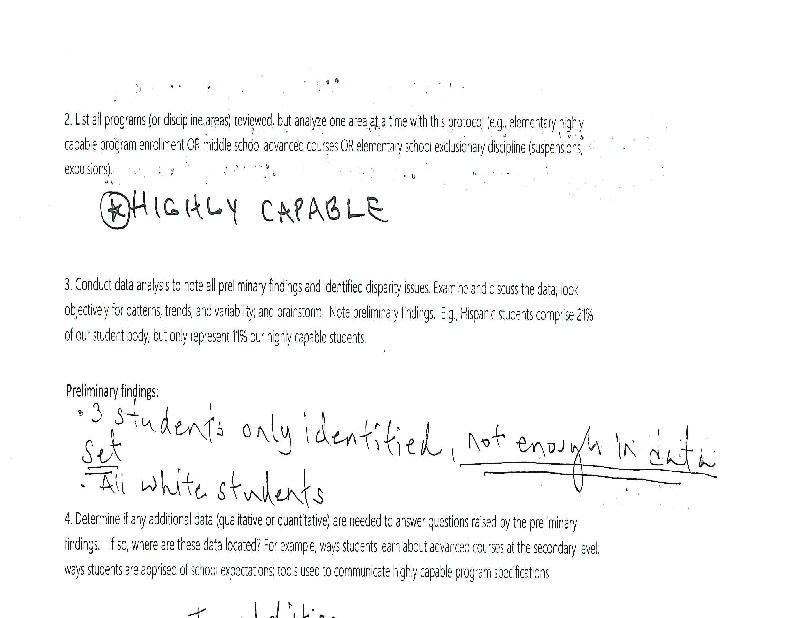 2. List all programs (or discipline areas) reviewed, but analyze one area at a time with this protocol (e.g., elementary highly
capable program enrollment OR middle school advanced courses OR elementary school exclusionary discipline (suspensions,
expulsions).
HIGHLY CAPABLE
3. Conduct data analysis to note all preliminary findings and identified disparity issues. Examine and discuss the data, look
objectively for patterns, trends, and variability; and brainstorm. Note preliminary findings. E.g., Hispanic students comprise 21%
of our student body, but only represent 11% our highly capable students.
Preliminary findings:
• 3 students only identified, not enough in data
set
• All white students
4. Determine if any additional data (qualitative or quantitative) are needed to answer questions raised by the preliminary
findings. If so, where are these data located? For example, ways students learn about advanced courses at the secondary level;
ways students are apprised of school expectations; tools used to communicate highly capable program specifications